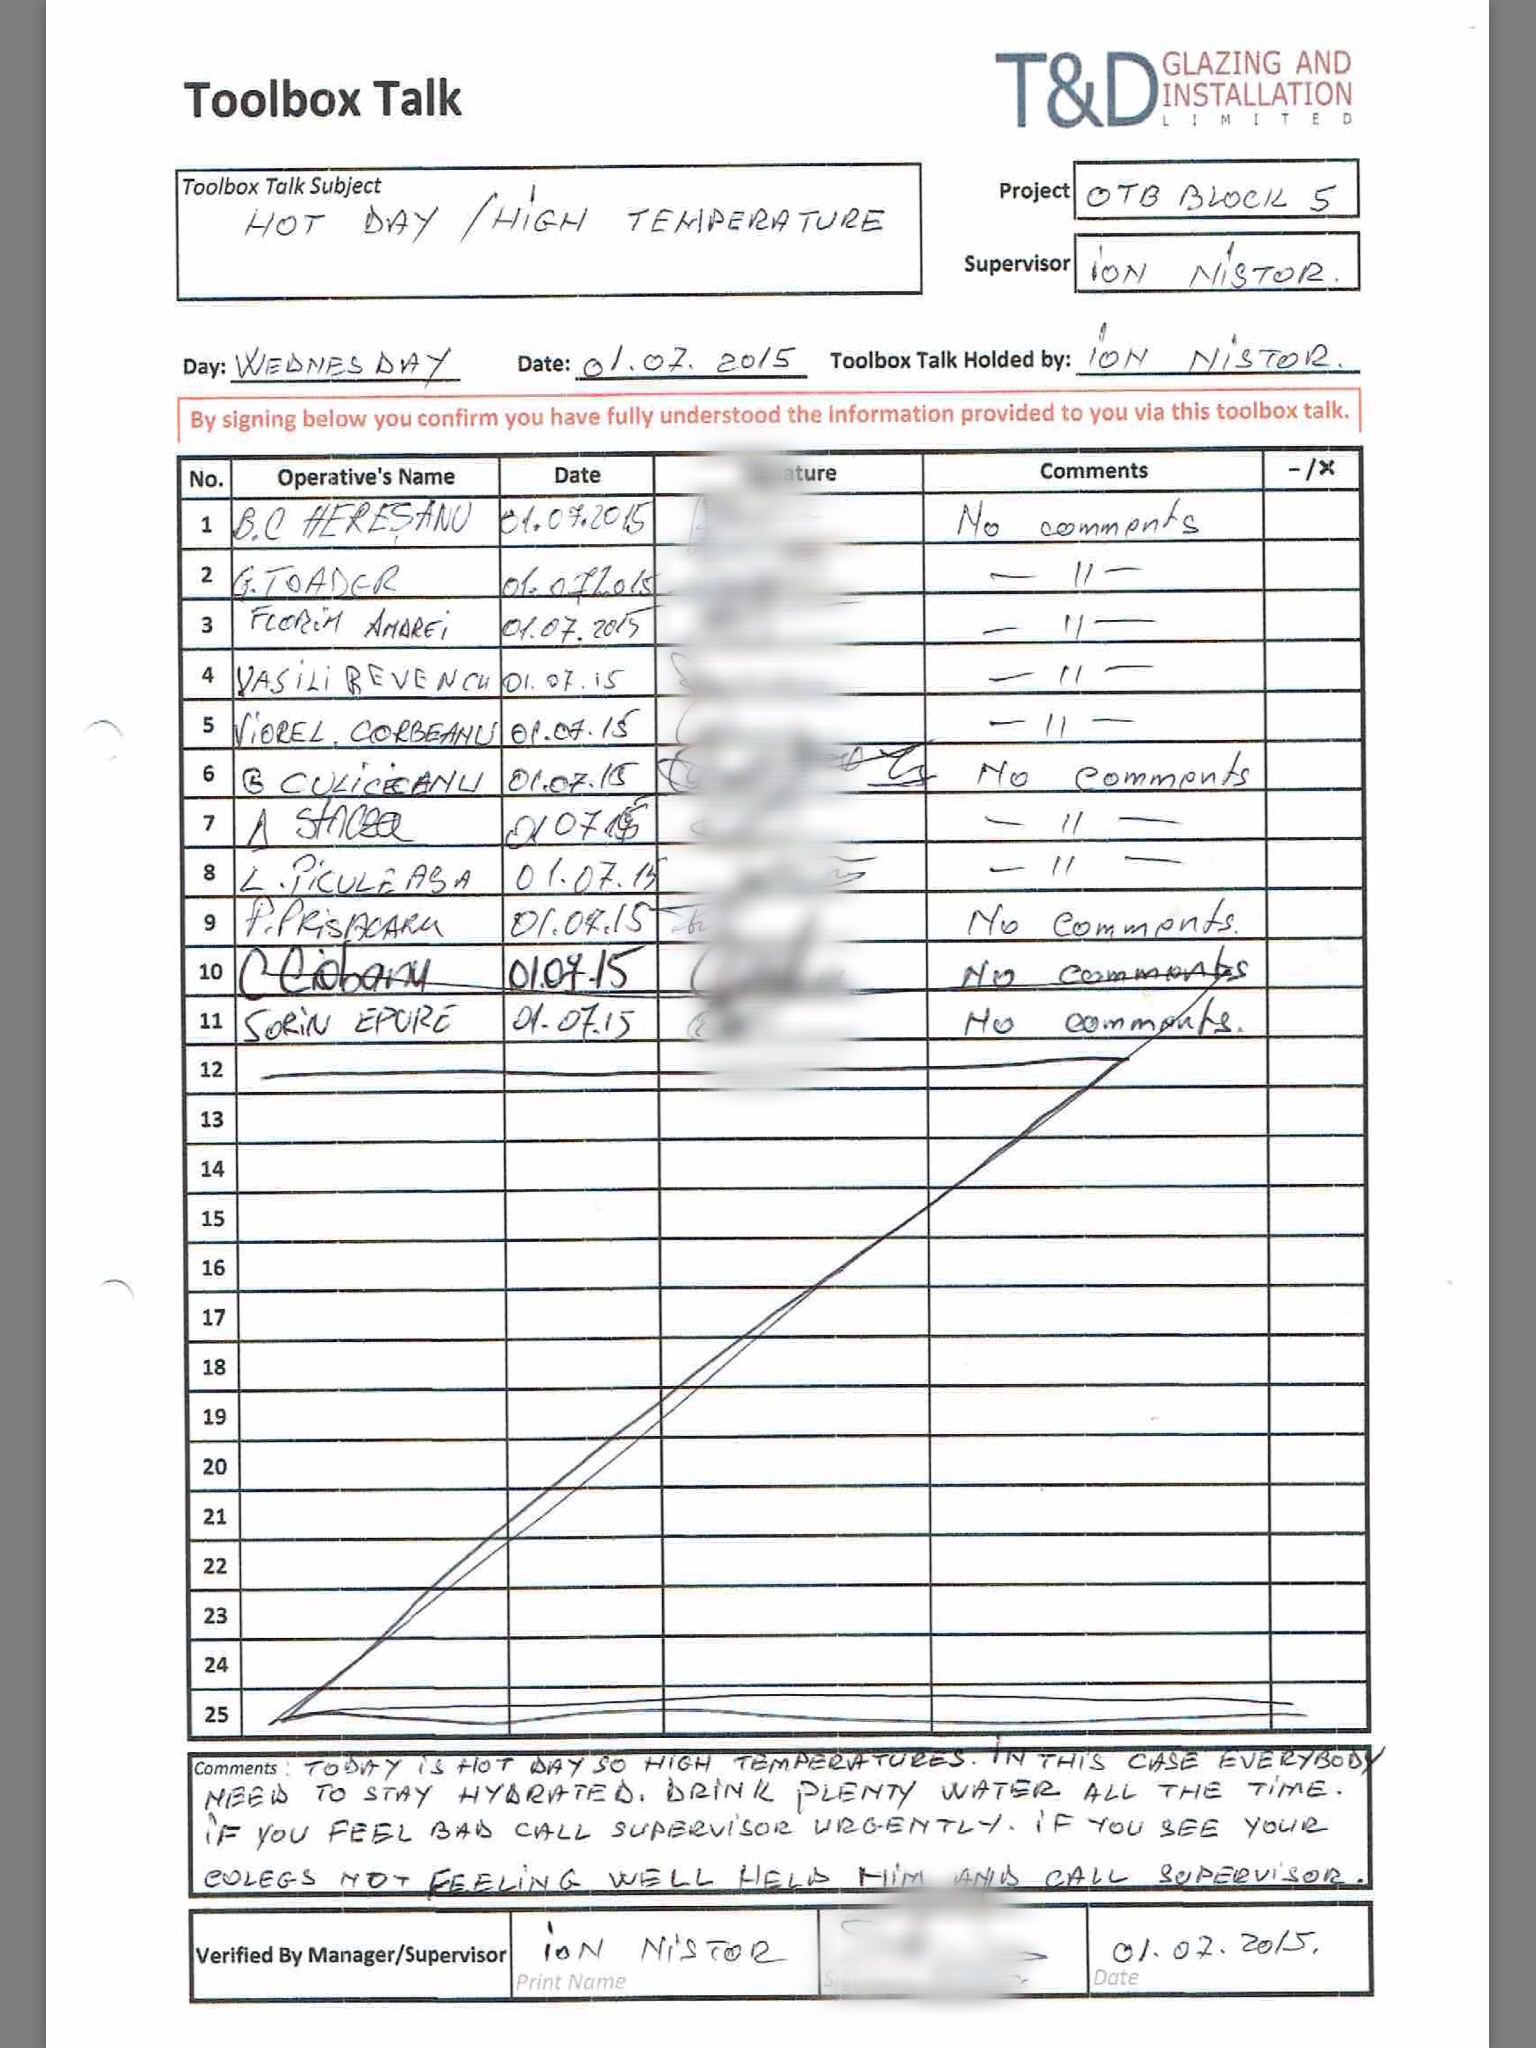 Toolbox Talk
T&D GLAZING AND
INSTALLATION
LIMITED
Toolbox Talk Subject
HOT DAY / HIGH TEMPERATURE
Project OTB BLOCK 5
Supervisor ION NISTOR.
Day: WEDNESDAY Date: 01.07.2015 Toolbox Talk Holded by: ION NISTOR.
By signing below you confirm you have fully understood the information provided to you via this toolbox talk.
No. Operative's Name Date ature Comments -/×
1 B.C HEREȘANU 01.07.2015 No comments
2 G.TOADER 01.07.2015 — 11 —
3 FLORIN AMAREI 01.07.2015 — 11 —
4 VASILI REVENCU 01.07.15 — 11 —
5 VIOREL. CORBEANU 01.07.15 — 11 —
6 01.07.15 No comments
7 01 07 15 — 11 —
8 L.PICULEASA 01.07.15 — 11 —
9 P.PRISACARU 01.07.15 No comments.
10 C Ciobanu 01.07.15 No comments
11 SORIN EPURE 01.07.15 No comments.
12
13
14
15
16
17
18
19
20
21
22
23
24
25
Comments : TODAY IS HOT DAY SO HIGH TEMPERATURES. IN THIS CASE EVERYBODY
NEED TO STAY HYDRATED. DRINK PLENTY WATER ALL THE TIME.
IF YOU FEEL BAD CALL SUPERVISOR URGENTLY. IF YOU SEE YOUR
COLEGS NOT FEELING WELL HELD HIM AND CALL SUPERVISOR.
Verified By Manager/Supervisor ION NISTOR 01.07.2015.
Print Name Date